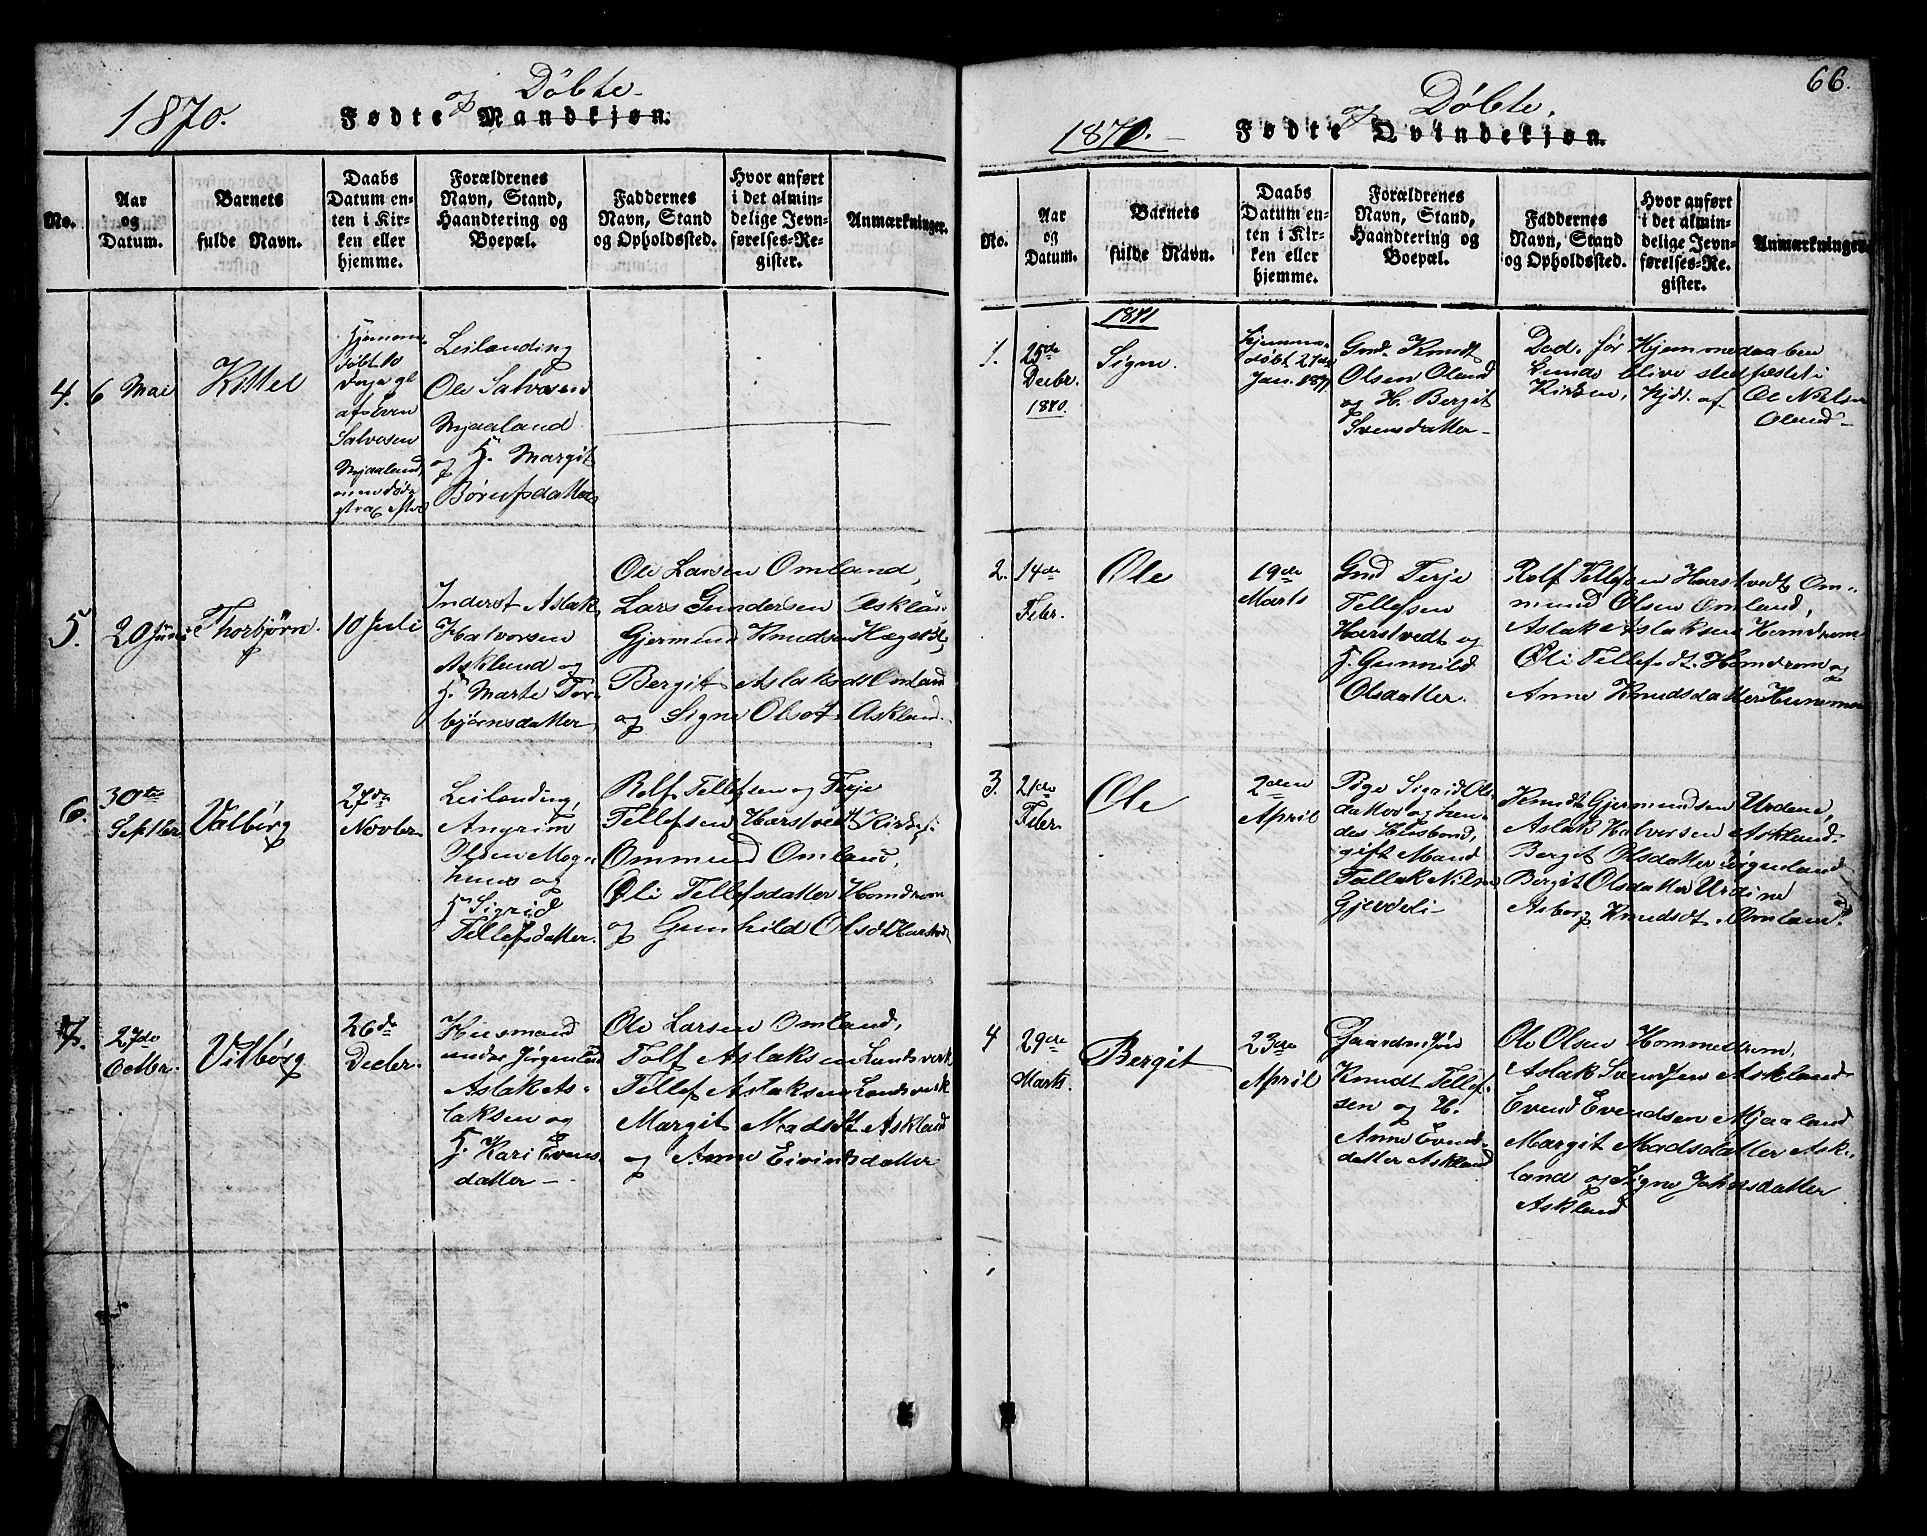 1870.
og Døbte.
Fødte Mandkjøn.
No.
Aar
og
Datum.
Barnets
fulde Navn.
Daabs
Datum en-
ten i Kir-
ken eller
hjemme.
Forældrenes
Navn, Stand,
Haandtering og
Boepæl.
Faddernes
Navn, Stand
og Opholdssted.
Hvor anført
i det almin-
delige Jevn-
førelses-Re-
gister.
Anmærkninger.
4.
6 Mai
Kittel
Hjemme
døbt 10
Salvesen
Mjaaland
strax efter
Leilænding
Ole Salvesen
Mjaaland
og H. Margit
5.
20 Juni
Thorbjørn.
10 Juli
Inderst Aslak
Halvorsen
Askland og
H. Marte Tor-
bjørnsdatter
Ole Larsen Omland,
Lars Gundersen
Gjermund Knudsen
Bergit Aslaksdt Omland
og Signe Olsdt. Askland.
6.
30te
Septbr
Valborg
27de
Novbr
Leilænding,
Angrim
Olsen
og
H Sigrid
Tellefsdatter.
Rolf Tellefsen og Terje
Tellefsen Harstvedt,
Ommund Omland,
Oli Tellefsdatter Homdrom
og Gunhild Olsdt Harstvedt
7.
27de
Octbr.
Vilborg
26de
Decbr.
Huusmand
under
Aslak As-
laksen og
H. Kari Evens-
datter –
Ole Larsen Omland,
Tolf Aslaksen Landsverk
Tellef Aslaksen Landsverk
Margit Madsdt Askland
og Anne Eivindsdatter
66.
1871.
og Døbte.
Fødte Qvindekjøn.
No.
Aar
og
Datum.
Barnets
fulde Navn.
Daabs
Datum en-
ten i Kir-
ken eller
hjemme.
Forældrenes
Navn, Stand,
Haandtering og
Boepæl.
Faddernes
Navn, Stand
og Opholdssted.
Hvor anført
i det almin-
delige Jevn-
førelses-Re-
gister.
Anmærkninger.
1871
1.
25de
Decbr.
1870.
Signe.
Hjemme-
døbt 27de
Jan. 1871
Gmd. Knudt
Olsen Oland
og H. Bergit
Svensdatter –
Død før Hjemmedaaben
kunde blive stedfæstet i
Kirken, Hjdt. af Ole Nielsen
Oland –
2.
14de
Febr.
Ole
19de
Marts
Gmd Terje
Tellefsen
Harstvedt og
H. Gunnild
Olsdatter.
Rolf Tellefsen Harstvedt Om-
mund Olsen Omland,
Aslak Aslaksen Homdrom
Oli Tellefsdt. Homdrom og
Anne Knudsdatter
3.
21de
Febr.
Ole
2den
April
Pige Sigrid Ols-
datter og hen-
des Husbond,
gift Mand
Tallak Nilsen
Gjevdeli –
Knudt Gjermundsen
Aslak Halvorsen Askland.
Bergit Olsdatter
Bergit Olsdatter
Asborg Knudsdt. Omland.
4
29de
Marts.
Bergit
23de
April
Gaardm.
Knudt Tellef-
sen og H.
Anne Evend-
datter Askland
Ole Olsen Hommeldrom,
Aslak Svendsen Askland
Evend Evendsen Mjaaland
Margit Madsdatter Ask-
land og Signe Johnsdatter
Askland